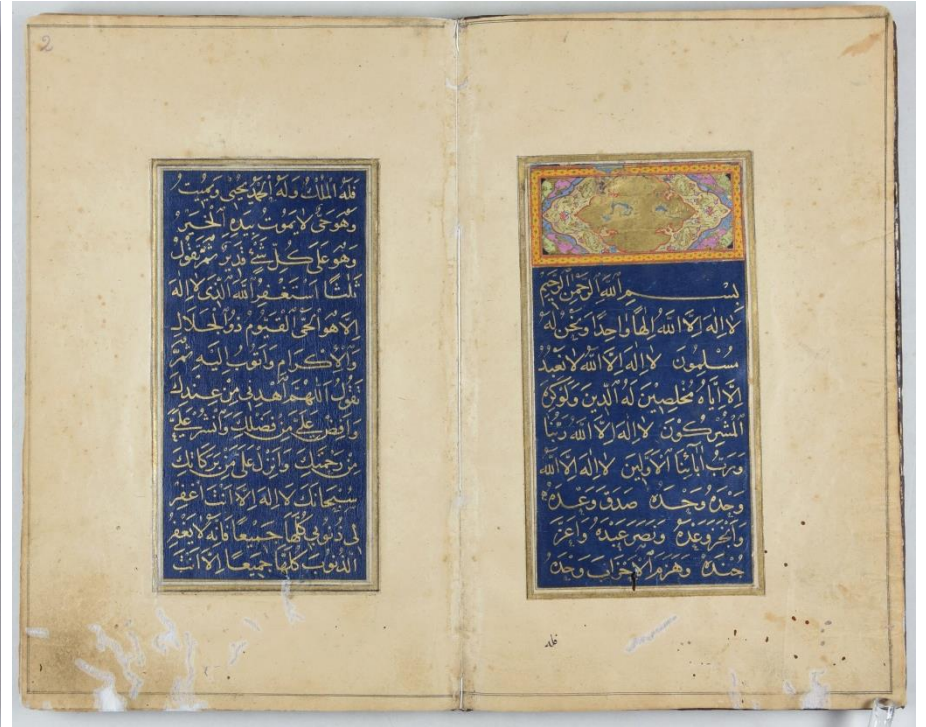 بِسْمِ اللّٰهِ الرَّحْمٰنِ الرَّحِيمِ
لا اِلهَ اِلاَّ اللّٰهُ اِلهًا واحِدًا وَنَحْنُ لَهُ
مُسْلِمُونَ لا اِلهَ اِلاَّ اللّٰهُ لا نَعْبُدُ
اِلاّ اِيّاهُ مُخْلِصِينَ لَهُ الدِّينَ وَلَوْ كَرِهَ
الْمُشْرِكُونَ لا اِلهَ اِلاَّ اللّٰهُ رَبُّنا
وَرَبُّ آبائِنَا الْاَوَّلِينَ لا اِلهَ اِلاَّ اللّٰهُ
وَحْدَهُ وَحْدَهُ صَدَقَ وَعْدَهُ
وَاَنْجَزَ وَعْدَهُ وَنَصَرَ عَبْدَهُ وَاَعَزَّ
جُنْدَهُ وَهَزَمَ الْاَحْزابَ وَحْدَهُ
فله
2
فَلَهُ الْمُلْكُ وَلَهُ الْحَمْدُ يُحْيِي وَيُمِيتُ
وَهُوَ حَيٌّ لا يَمُوتُ بِيَدِهِ الْخَيْرُ
وَهُوَ عَلى كُلِّ شَيْءٍ قَدِيرٌ ثُمَّ تَقُولُ
ثَلٰثًا اَسْتَغْفِرُ اللّٰهَ الَّذِي لا اِلهَ
اِلاّ هُوَ الْحَيُّ الْقَيُّومُ ذُو الْجَلالِ
وَالْاِكْرامِ وَاَتُوبُ اِلَيْهِ ثُمَّ
تَقُولُ اَللّٰهُمَّ اهْدِنِي مِنْ عِنْدِكَ
وَاَفِضْ عَلَيَّ مِنْ فَضْلِكَ وَانْشُرْ عَلَيَّ
مِنْ رَحْمَتِكَ وَاَنْزِلْ عَلَيَّ مِنْ بَرَكاتِكَ
سُبْحانَكَ لا اِلهَ اِلاّ اَنْتَ اغْفِرْ
لِي ذُنُوبِي كُلَّها جَمِيعًا فَاِنَّهُ لا يَغْفِرُ
الذُّنُوبَ كُلَّها جَمِيعًا اِلاّ اَنْتَ